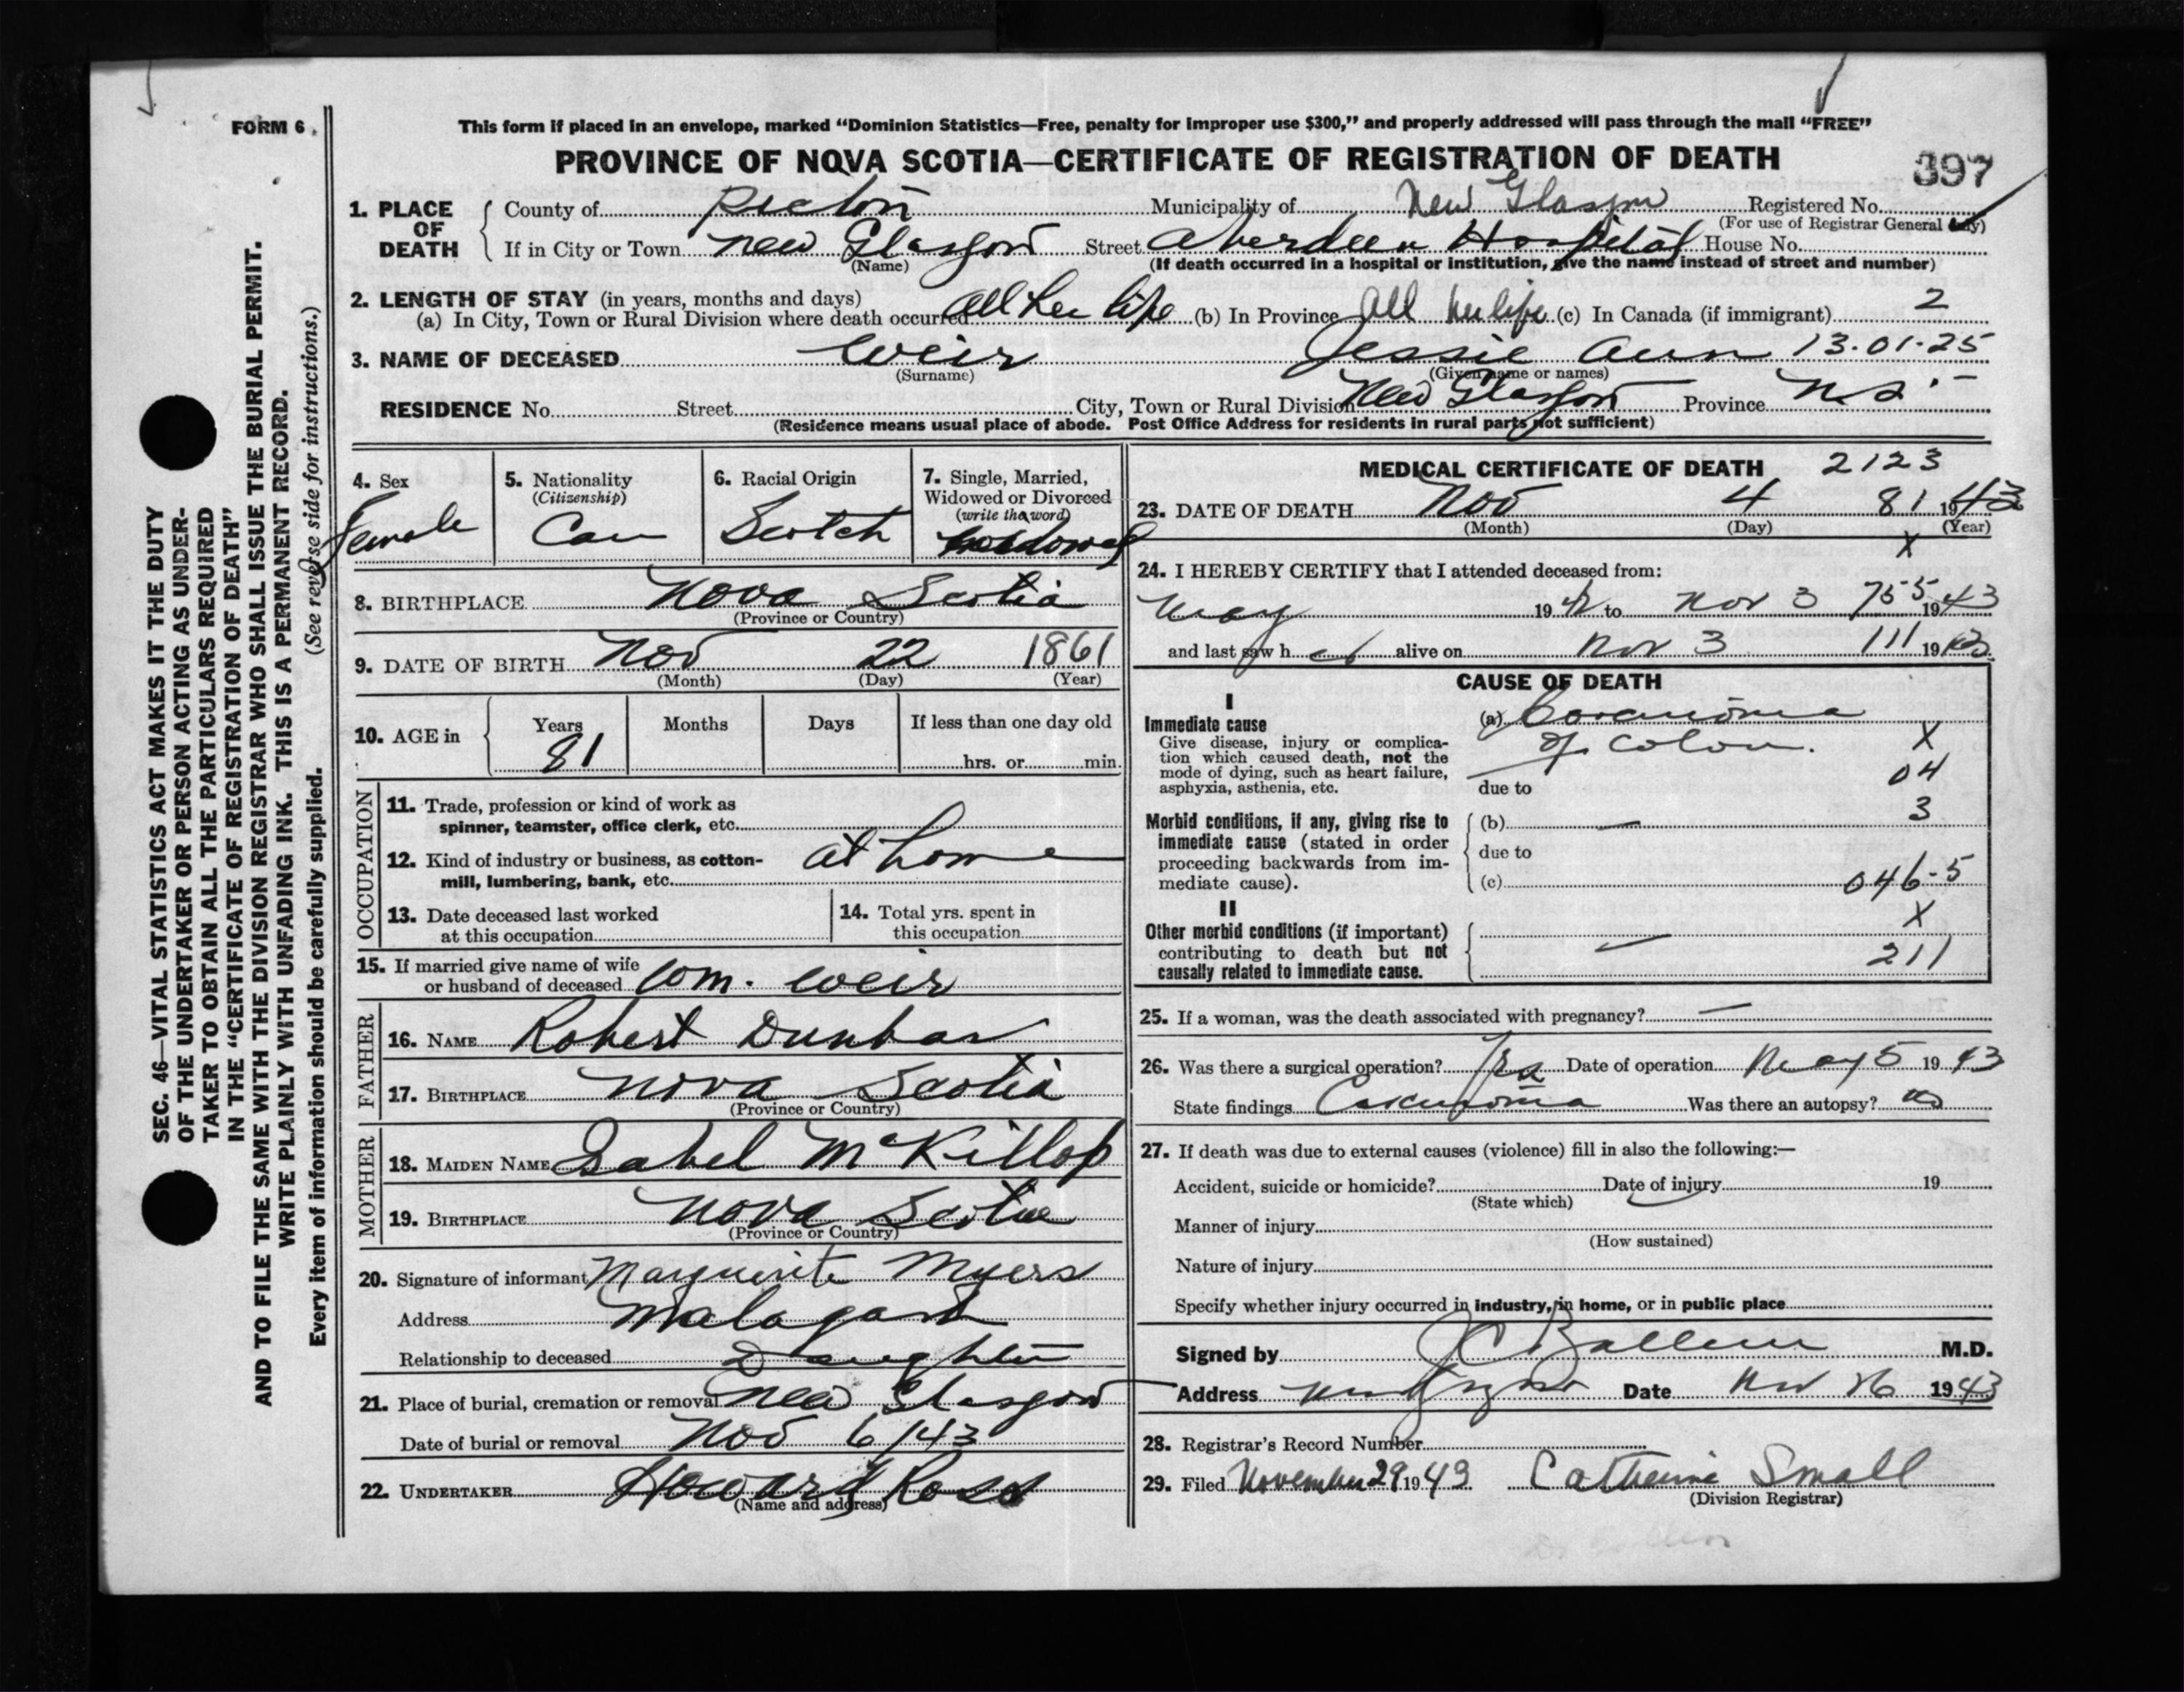 FORM 6
This form if placed in an envelope, marked “Dominion Statistics—Free, penalty for improper use $300,” and properly addressed will pass through the mail “FREE”
PROVINCE OF NOVA SCOTIA—CERTIFICATE OF REGISTRATION OF DEATH
397
1. PLACE OF DEATH
County of Pictou Municipality of New Glasgow Registered No.
(For use of Registrar General only)
If in City or Town New Glasgow Street Aberdeen Hospital House No.
(Name)
(If death occurred in a hospital or institution, give the name instead of street and number)
2. LENGTH OF STAY (in years, months and days)
(a) In City, Town or Rural Division where death occurred all her life (b) In Province All her life (c) In Canada (if immigrant) 2
3. NAME OF DECEASED Weir Jessie Ann 13.01.25
(Surname) (Given name or names)
RESIDENCE No. Street City, Town or Rural Division New Glasgow Province N.S.
(Residence means usual place of abode. Post Office Address for residents in rural parts not sufficient)
4. Sex
Female
5. Nationality
(Citizenship)
Can
6. Racial Origin
Scotch
7. Single, Married,
Widowed or Divorced
(write the word)
Widowed
8. BIRTHPLACE Nova Scotia
(Province or Country)
9. DATE OF BIRTH Nov 22 1861
(Month) (Day) (Year)
10. AGE in
Years Months Days If less than one day old
81 hrs. or min.
OCCUPATION
11. Trade, profession or kind of work as
spinner, teamster, office clerk, etc.
12. Kind of industry or business, as cotton-
mill, lumbering, bank, etc. at home
13. Date deceased last worked
at this occupation
14. Total yrs. spent in
this occupation
15. If married give name of wife
or husband of deceased Wm. Weir
FATHER
16. NAME Robert Dunbar
17. BIRTHPLACE Nova Scotia
(Province or Country)
MOTHER
18. MAIDEN NAME Isabel McKillop
19. BIRTHPLACE Nova Scotia
(Province or Country)
20. Signature of informant Marguerite Myers
Address Malagash
Relationship to deceased Daughter
21. Place of burial, cremation or removal New Glasgow
Date of burial or removal Nov 6/43
22. UNDERTAKER Howard Ross
(Name and address)
MEDICAL CERTIFICATE OF DEATH 2123
23. DATE OF DEATH Nov 4 81 1943
(Month) (Day) (Year)
X
24. I HEREBY CERTIFY that I attended deceased from:
May 19 to Nov 3 755 1943
and last saw h er alive on Nov 3 111 1943
CAUSE OF DEATH
I
Immediate cause
Give disease, injury or complica-
tion which caused death, not the
mode of dying, such as heart failure,
asphyxia, asthenia, etc.
(a) Carcinoma
of colon. X
04
due to
Morbid conditions, if any, giving rise to
immediate cause (stated in order
proceeding backwards from im-
mediate cause).
(b) — 3
due to
(c) 046-5
II
Other morbid conditions (if important)
contributing to death but not
causally related to immediate cause.
X
211
25. If a woman, was the death associated with pregnancy? —
26. Was there a surgical operation? Yes Date of operation May 5 1943
State findings Carcinoma Was there an autopsy? no
27. If death was due to external causes (violence) fill in also the following:—
Accident, suicide or homicide? Date of injury 19
(State which)
Manner of injury
(How sustained)
Nature of injury
Specify whether injury occurred in industry, in home, or in public place
Signed by J C Ballem M.D.
Address New Glasgow Date Nov 26 1943
28. Registrar's Record Number
29. Filed November 29 1943 Catherine Small
(Division Registrar)
SEC. 46—VITAL STATISTICS ACT MAKES IT THE DUTY
OF THE UNDERTAKER OR PERSON ACTING AS UNDER-
TAKER TO OBTAIN ALL THE PARTICULARS REQUIRED
IN THE “CERTIFICATE OF REGISTRATION OF DEATH”
AND TO FILE THE SAME WITH THE DIVISION REGISTRAR WHO SHALL ISSUE THE BURIAL PERMIT.
WRITE PLAINLY WITH UNFADING INK. THIS IS A PERMANENT RECORD.
Every item of information should be carefully supplied. (See reverse side for instructions.)